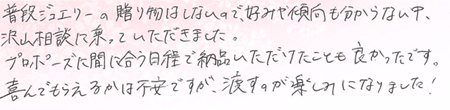 普段ジュエリーの贈り物はしないので好みや傾向も分からない中、
沢山相談に乗っていただきました。
プロポーズに間に合う日程で納品いただけたことも良かったです。
喜んでもらえるかは不安ですが、渡すのが楽しみになりました！